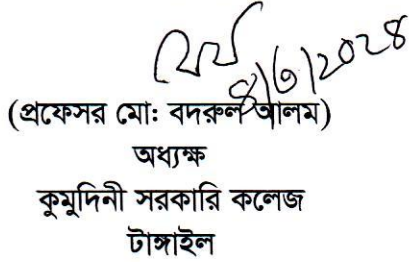 ৪/৩/২০২৪
(প্রফেসর মো: বদরুল আলম)
অধ্যক্ষ
কুমুদিনী সরকারি কলেজ
টাঙ্গাইল